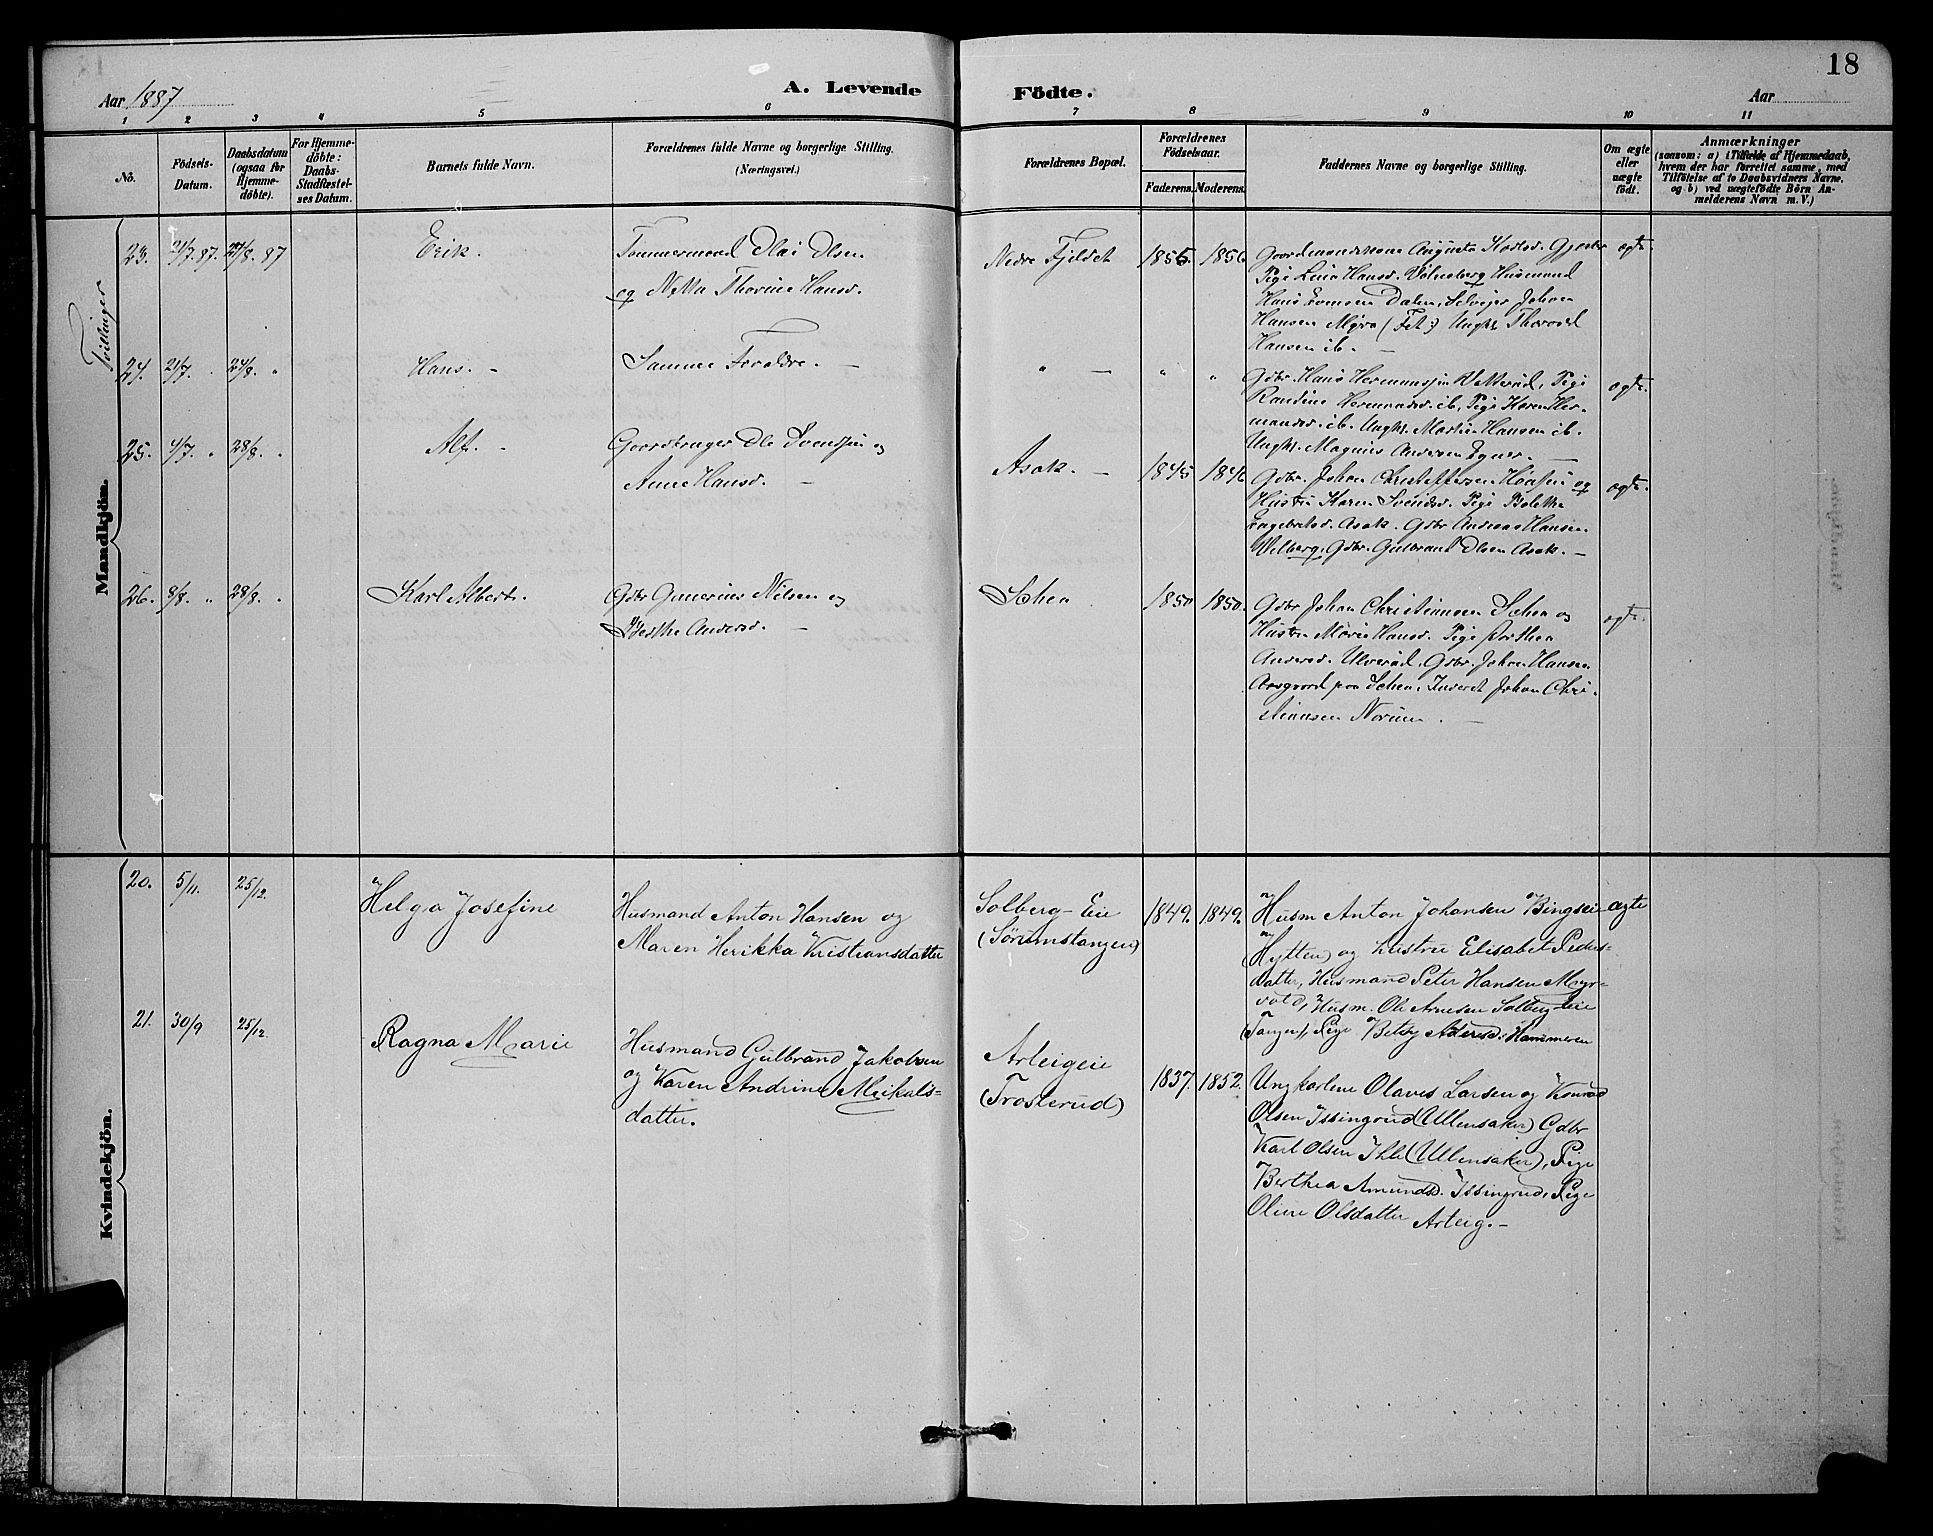 18
Aar 1887
A. Levende
Födte.
Aar
1 2 3 4 5 6 7 8 9 10 11
No.
Födsels-
Datum.
Daabsdatum
(ogsaa for
Hjemme-
döbte).
For Hjemme-
döbte:
Daabs-
Stadfæstel-
ses Datum.
Barnets fulde Navn.
Forældrenes fulde Navne og borgerlige Stilling.
(Næringsvei.)
Forældrenes Bopæl.
Forældrenes
Födselsaar.
Faderens. Moderens.
Faddernes Navne og borgerlige Stilling.
Om ægte
eller
uægte
födt.
Anmærkninger
(saasom: a) i Tilfælde af Hjemmedaab,
hvem der har forrettet samme, med
Tilföielse af to Daabsvidners Navne.
og b) ved uægtefödte Börn An-
melderens Navn m. V.)
Mandkjön.
Tvillinger
23. 21/7 87. 24/8 87
Erik.
Tømmermand Olai Olsen
og Netta Thorine Hansd.
Nedre Fjeldet
1856. 1856
Hans Evensen Dalen, Selveier Johan
Hansen Myra (Fet:) Ungk. Thorvald
Hansen ib. —
ægte
24. 21/7 " 24/8 "
Hans. -
Samme Forældre. —
" — " "
Gdbr. Hans Hermansen Vetterud, Pige
Randine Hermansd. ib, Pige Karen Her-
mansd. ib. Ungk. Martin Hansen ib.
Ungk. Magnus Andersen Egner. —
ægte.
25. 4/7 " 28/8 "
Alf. -
Gaardbruger Ole Svendsen og
Anne Hansd. —
Asak. —
1845 1846
Gdbr. Johan Christoffersen og
Hustru Karen Svendsd. Pige
Engebretsd. Asak. Gdbr Andreas Hansen
Vilberg, Gdbr. Gulbrand Olsen Asak. —
ægte.
26. 8/8. " 28/8 "
Karl Albert.
Gdbr Gunerius Nilsen og
Berthe Andersd. —
1850 1850.
Gdbr Johan Christiansen og
Hustru Marie Hansd. Pige Dorthea
Andersd. Ulverud, Gdbr. Johan Hansen
Aasgaard paa Inderst Johan Chri-
stiansen Norum. —
ægte.
Kvindekjön.
20. 5/11. 25/12.
Helga Josefine
Husmand Anton Hansen og
Maren Herikka Kristiansdatter
Solberg-Eie
(Sørumstangen)
1849. 1849.
Husm Anton Johansen Bingseie
(Hytten) og hustru Elisabet Peders-
datter, Husmand Peter Hansen Myr-
vold, Husm. Ole Arnesen Solberg-eie
(Tangen), Pige Betsy Andersd. Hammeren
ægte
21. 30/9 25/12.
Ragna Marie
Husmand Gulbrand Jakobsen
og Karen Andrine Mikals-
datter.
Arteigeie
(Trosterud)
1837. 1852.
Ungkarlene Olaves Larsen og Konrad
Olsen Issingrud (Ullensaker) Gdbr
Karl Olsen Ihle (Ullensaker), Pige
Berthea Amundsd. Issingrud, Pige
Oline Olsdatter Arteig. —